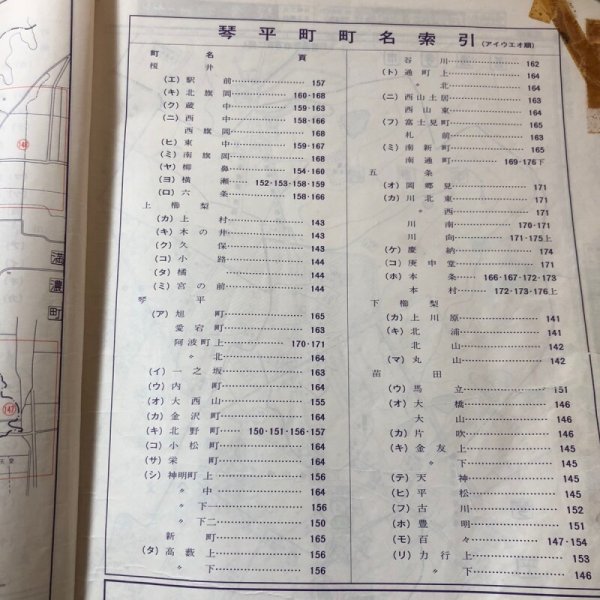 琴平町町名索引(アイウエオ順)
町名 頁
榎井
(エ)駅前 157
(キ)北旗岡 160・168
(ク)蔵中 159・163
(ニ)西中 158・166
西旗岡 168
(ヒ)東中 159・167
(ミ)南旗岡 168
(ヤ)柳鼻 154・160
(ヨ)横瀬 152・153・158・159
(ロ)六条 158・166
上櫛梨
(カ)上村 143
(キ)木の井 143
(ク)久保 143
(コ)小路 144
(タ)橘 144
(ミ)宮の前 144
琴平
(ア)旭町 165
愛宕町 163
阿波町上 170・171
〃北 164
(イ)一之坂 163
(ウ)内町 164
(オ)大西山 155
(カ)金沢町 164
(キ)北野町 150・151・156・157
(コ)小松町 164
(サ)栄町 164
(シ)神明町上 156
〃中 164
〃下一 156
〃下二 150
新町 165
(タ)高藪上 156
〃下 156
谷川 162
(ト)通町上 164
〃北 164
(ニ)西山土居 163
西山東 164
(フ)富士見町 165
札前 163
(ミ)南新町 165
南通町 169・176下
五条
(オ)岡郷見 171
(カ)川北東 171
〃西 171
川南 170・171
川向 171・175上
(ケ)慶納 174
(コ)庚申堂 171
(ホ)本条 166・167・172・173
本村 172・173・176上
下櫛梨
(カ)上川原 141
(キ)北浦 141
北山 142
(マ)丸山 142
苗田
(ウ)馬立 151
(オ)大橋 146
大山 146
(カ)片吹 146
(キ)金友上 145
〃下 145
(テ)天神 145
(ヒ)平松 145
(フ)古川 152
(ホ)豊明 151
(モ)百々 147・154
(リ)力行上 153
〃下 146
148
満濃町
147